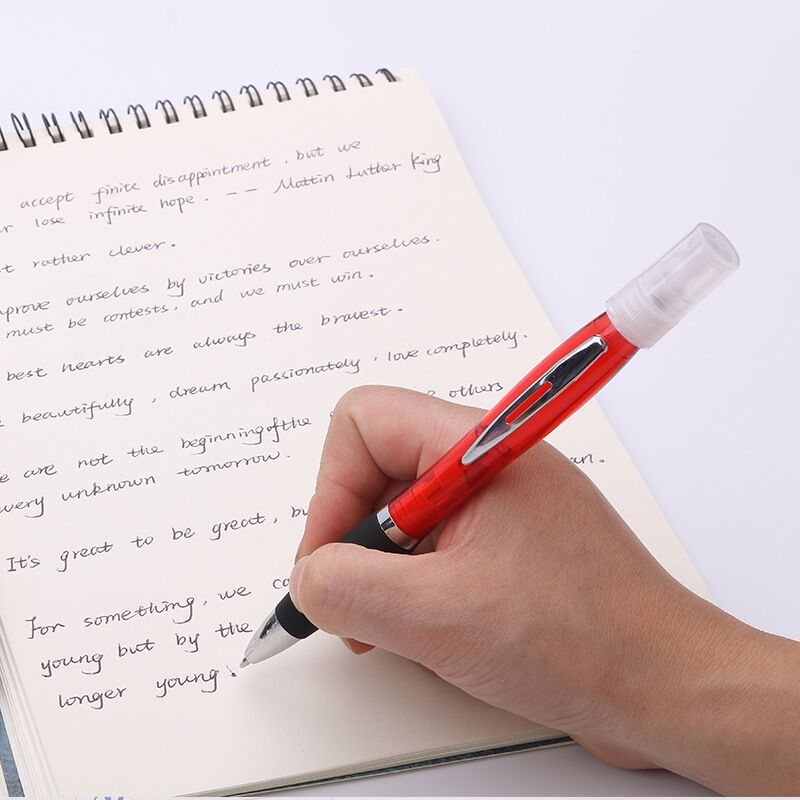 accept finite disappointment, but we
r lose infinite hope. -- Mattin Luther King
t rather clever.
mprove ourselves by victories over ourselves.
must be contests, and we must win.
best hearts are always the bravest.
beautifully, dream passionately, love completely.
e are not the beginning of the others
very unknown tomorrow. an.
It's great to be great, bu
For something, we ca
young but by the
longer young.